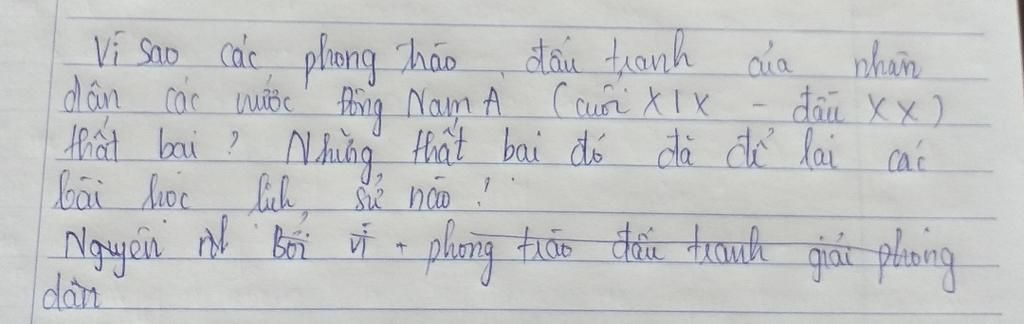 Vì sao các phong trào đấu tranh của nhân
dân các nước Đông Nam Á (cuối XIX - đầu XX)
thất bại? Những thất bại đó đã để lại các
bài học lịch sử nào?
Nguyên nl Bởi vì + phong trào đấu tranh giải phóng
dân